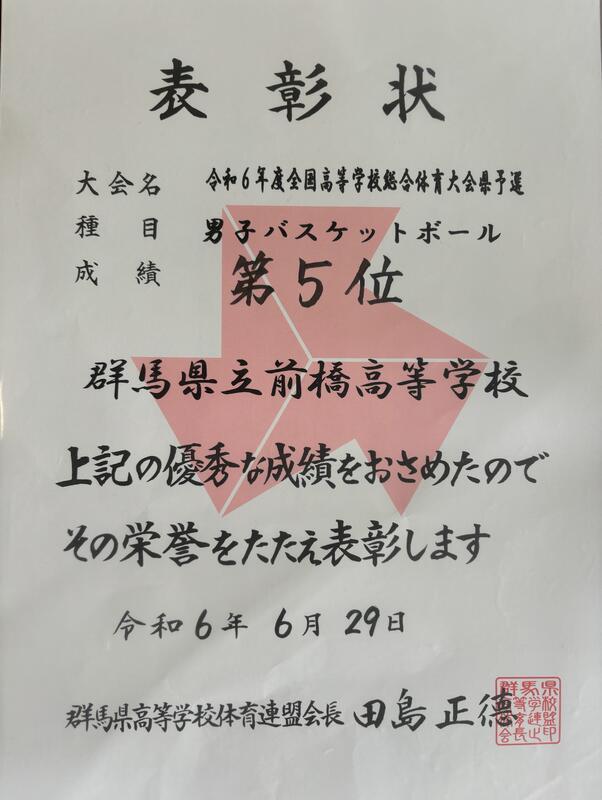 表彰状
大会名 令和6年度全国高等学校総合体育大会県予選
種目 男子バスケットボール
成績 第5位
群馬県立前橋高等学校
上記の優秀な成績をおさめたので
その栄誉をたたえ表彰します
令和6年 6月 29日
群馬県高等学校体育連盟会長 田島正徳